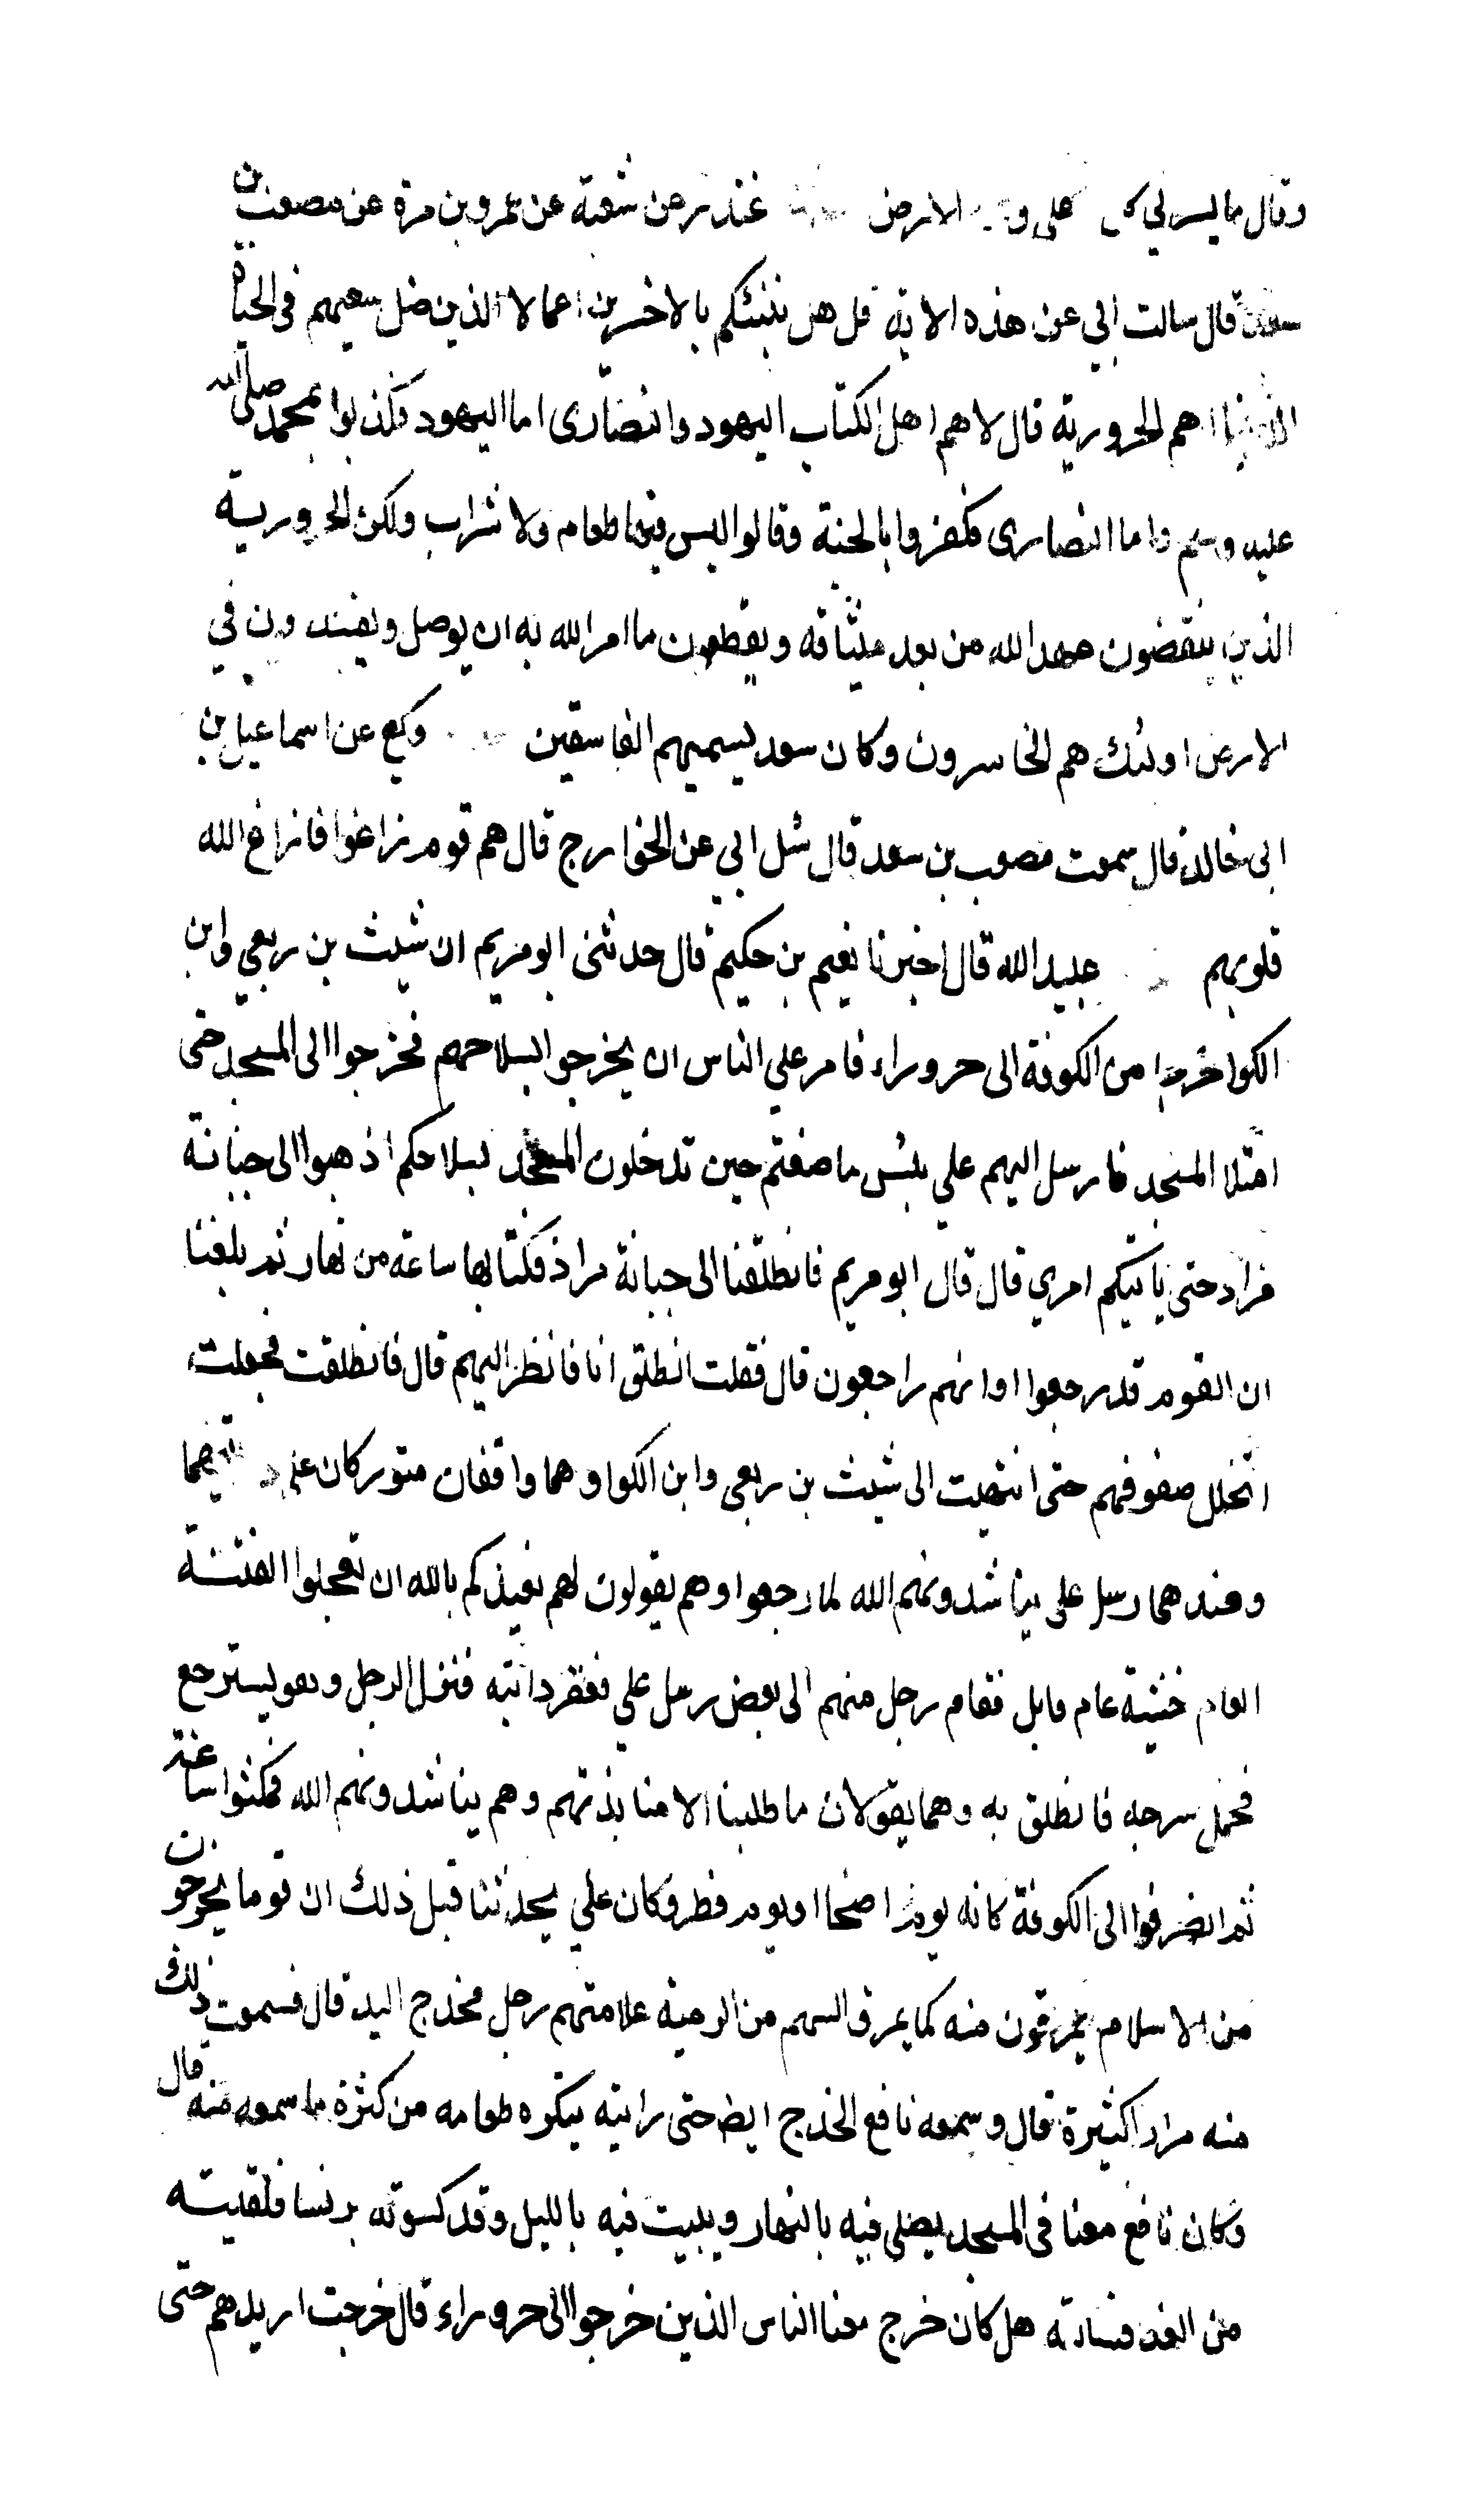 وقال ما يسرني على الارض غندر عن شعبة عن عمرو بن مرة عن مصعب بن
سعد قال سالت ابي عن هذه الاية قل هل ننبئكم بالاخسرين اعمالا الذين ضل سعيهم في الحياة
الدنيا اهم الحرورية قال لا هم اهل الكتاب اليهود والنصارى اما اليهود فكذبوا بمحمد صلى الله
عليه وسلم واما النصارى فكفروا بالجنة وقالوا ليس فيها طعام ولا شراب ولكن الحرورية
الذين ينقضون عهد الله من بعد ميثاقه ويقطعون ما امر الله به ان يوصل ويفسدون في
الارض اولئك هم الخاسرون وكان سعد يسميهم الفاسقين وكيع عن اسماعيل بن
ابي خالد قال سمعت مصعب بن سعد قال سئل ابي عن الخوارج قال هم قوم زاغوا فازاغ الله
قلوبهم عبيد الله قال اخبرنا نعيم بن حكيم قال حدثني ابو مريم ان شبث بن ربعي وابن
الكوا خرجا من الكوفة الى حروراء فامر علي الناس ان يخرجوا بسلاحهم فخرجوا الى المسجد حتى
امتلا المسجد فارسل اليهم علي بئس ما صنعتم حين تدخلون المسجد بسلاحكم اذهبوا الى جبانة
مراد حتى ياتيكم امري قال قال ابو مريم فانطلقنا الى جبانة مراد فكنا بها ساعة من نهار ثم بلغنا
ان القوم قد رجعوا او انهم راجعون قال فقلت انطلق انا فانظر اليهم قال فانطلقت فجعلت
اتخلل صفوفهم حتى انتهيت الى شبث بن ربعي وابن الكوا وهما واقفان متوركان على دابتيهما
وعندهما رسل علي يناشدونهم الله لما رجعوا وهم يقولون لهم نعيذكم بالله ان تعجلوا الفتنة
العام خشية عام قابل فقام رجل منهم الى بعض رسل علي فعقر دابته فنزل الرجل وهو يسترجع
فحمل سرجه فانطلق به وهما يقولان ما طلبنا الا منابذتهم وهم يناشدونهم الله فمكثوا ساعة
ثم انصرفوا الى الكوفة كانه يوم اضحا او يوم فطر وكان علي يحدثنا قبل ذلك ان قوما يخرجون
من الاسلام يمرقون منه كما يمرق السهم من الرمية علامتهم رجل مخدج اليد قال فسمعت ذلك
منه مرارا كثيرة قال وسمعه نافع المخدج ايضا حتى رايته يتكره طعامه من كثرة ما سمعه منه قال
وكان نافع معنا في المسجد يصلي فيه بالنهار ويبيت فيه بالليل وقد كسوته برنسا فلقيته
من الغد فسالته هل كان خرج معنا الناس الذين خرجوا الى حروراء قال خرجت اريدهم حتى